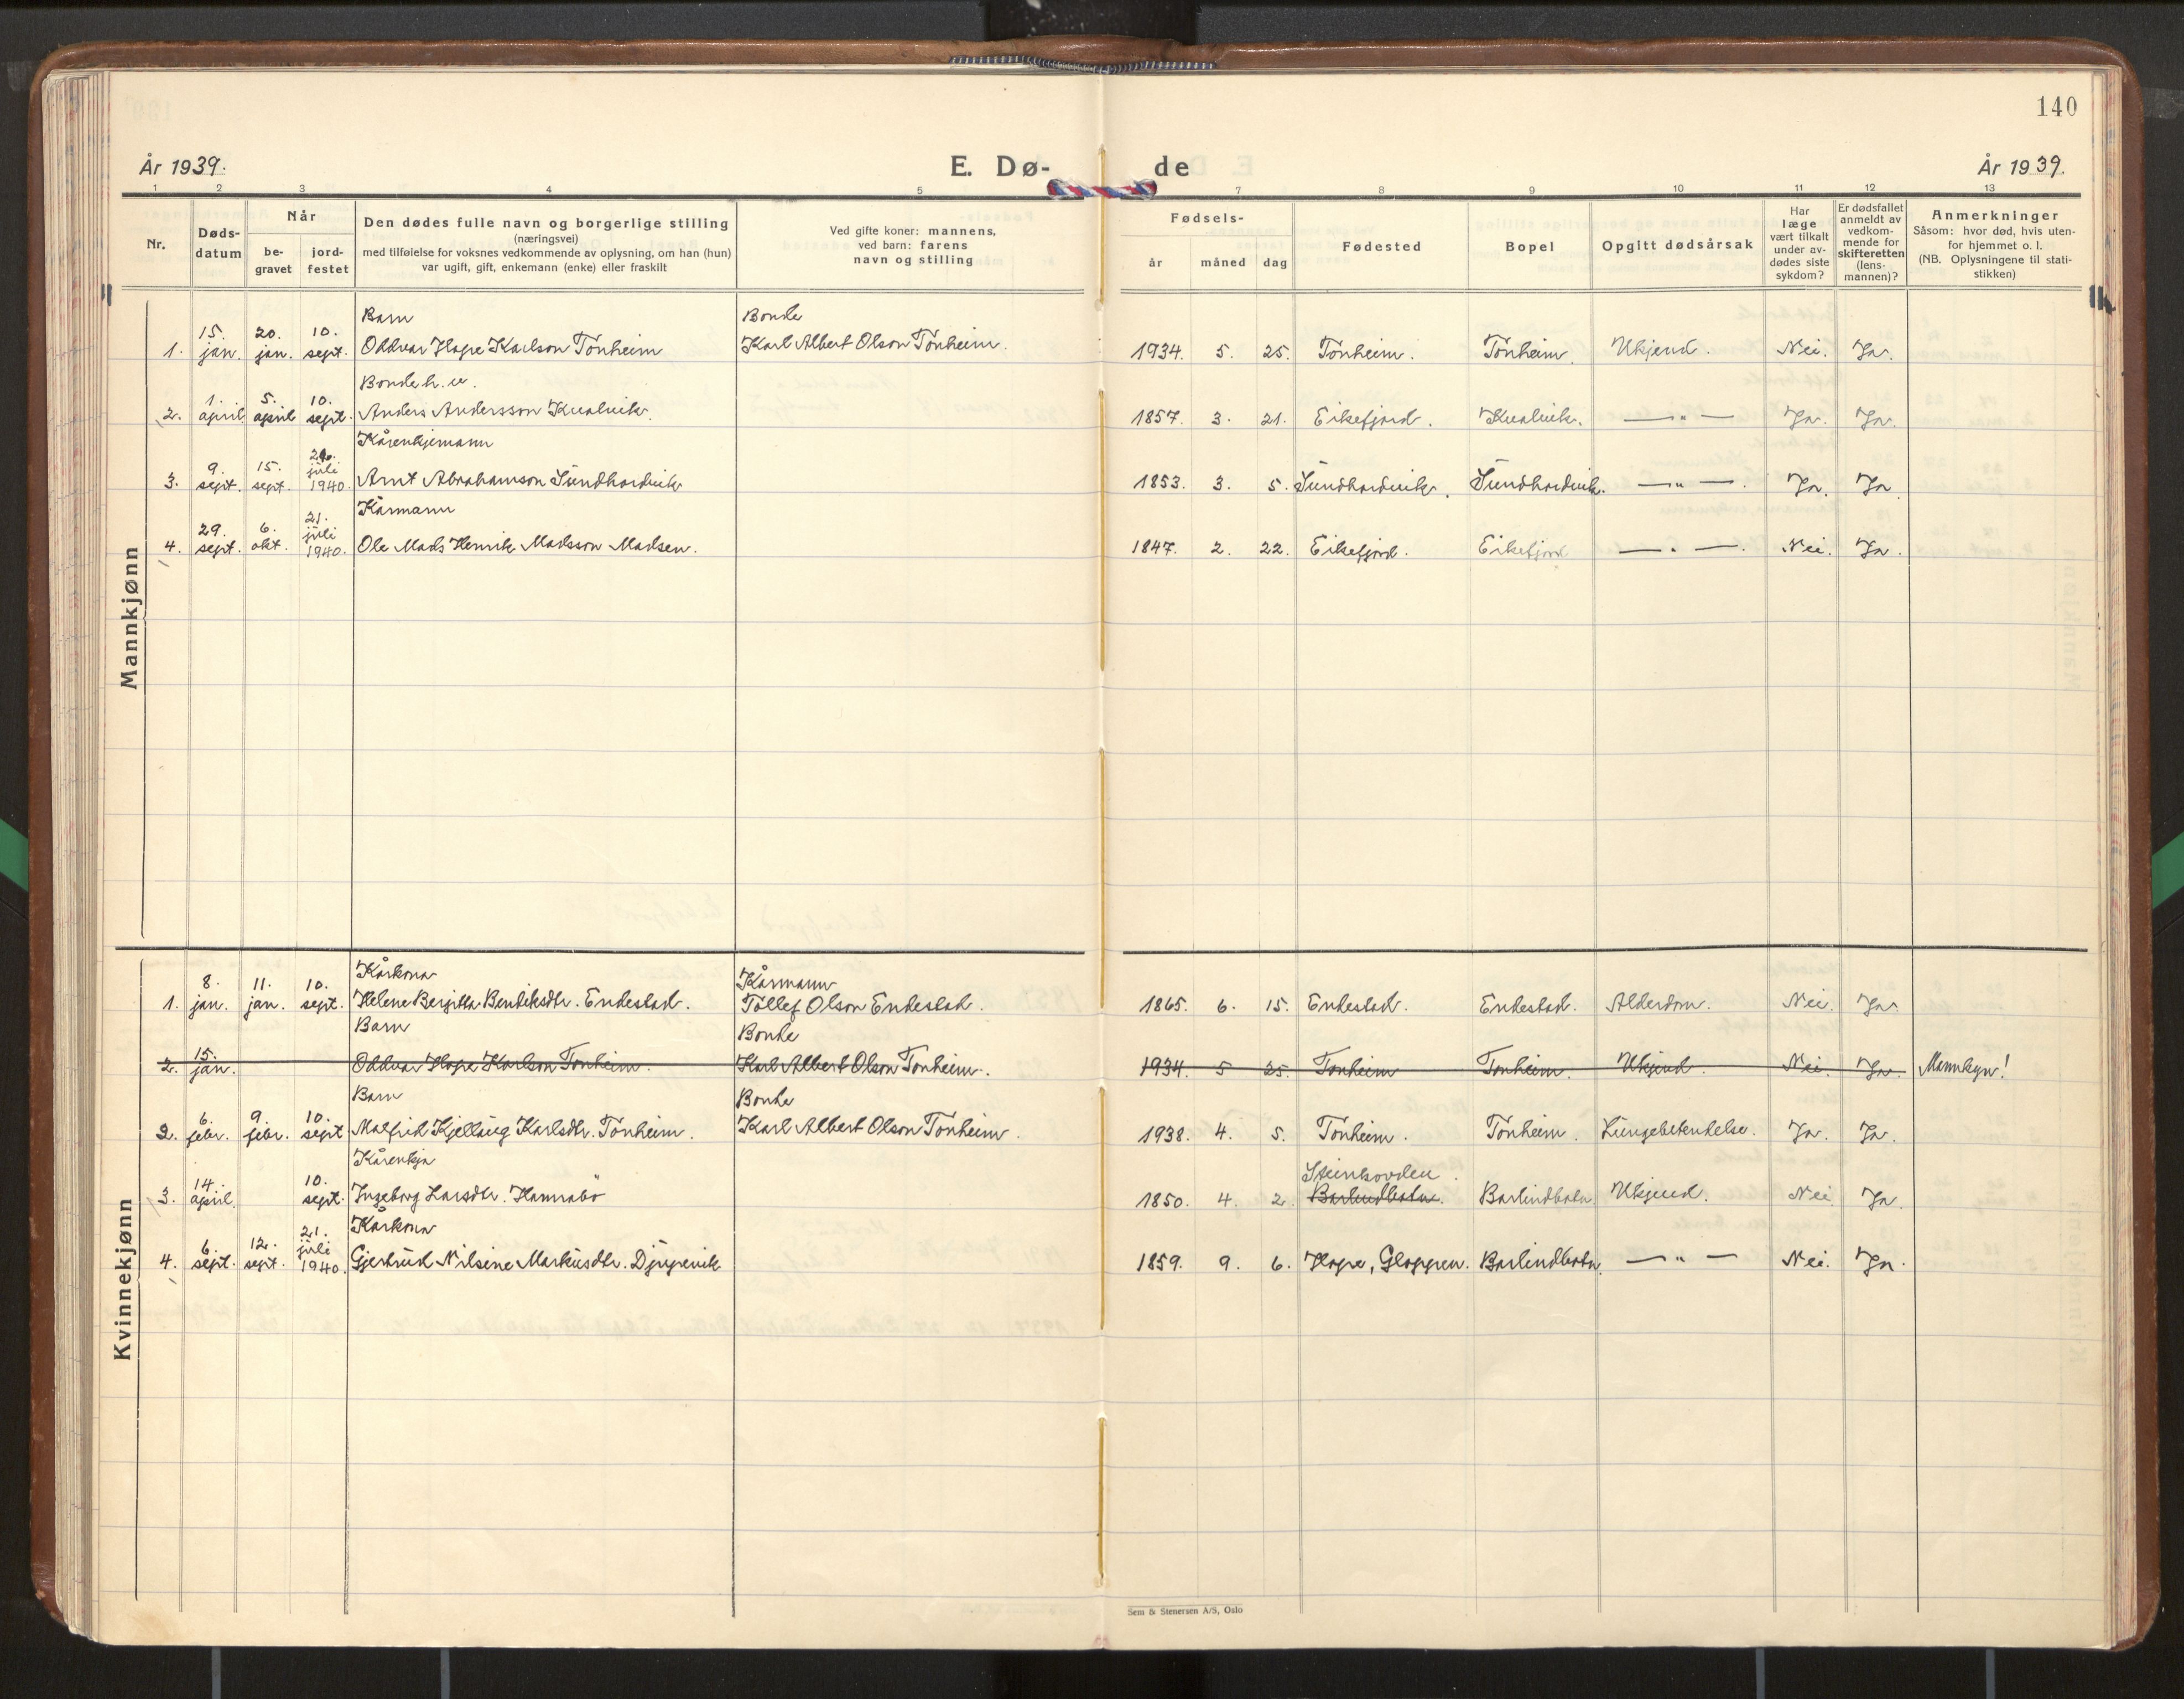 140
År 1939.
E. Dø-
de
År 1939.
1 2 3 4 5 7 8 9 10 11 12 13
Nr.
Døds-
datum
Når
be-
gravet
jord-
festet
Den dødes fulle navn og borgerlige stilling
(næringsvei)
med tilføielse for voksnes vedkommende av oplysning, om han (hun)
var ugift, gift, enkemann (enke) eller fraskilt
Ved gifte koner: mannens,
ved barn: farens
navn og stilling
Fødsels-
år måned dag
Fødested
Bopel
Opgitt dødsårsak
Har
læge
vært tilkalt
under av-
dødes siste
sykdom?
Er dødsfallet
anmeldt av
vedkom-
mende for
skifteretten
(lens-
mannen)?
Anmerkninger
Såsom: hvor død, hvis uten-
for hjemmet o. l.
(NB. Oplysningene til stati-
stikken)
Mannkjønn
Barn Bonde
15. 20. 10.
1. jan. jan. sept. Oddvar Hope Karlson Tonheim Karl Albert Olson Tonheim. 1934. 5. 25. Tonheim. Tonheim. Ukjend. Nei. Ja.
Bonde h. u.
1. 5. 10.
2. april april sept. Anders Andersson Kvalvik. 1857. 3. 21. Eikefjord. Kvalvik. — " — Ja. Ja.
Kårenkjemann
9. 15. 21. juli
3. sept. sept. 1940. Arnt Abrahamson Sundhordvik 1853. 3. 5. Sundhordvik. Sundhordvik. — " —. Ja. Ja.
Kårmann
29. 6. 21. juli
4. sept. okt. 1940. Ole Mads Henrik Madsson Madsen. 1847. 2. 22. Eikefjord. Eikefjord — " —. Nei. Ja.
Kvinnekjønn
Kårkona Kårmann
8. 11. 10.
1. jan. jan. sept. Helene Bergitta Bendiksdtr. Endestad. Tollef Olson Endestad. 1865. 6. 15. Endestad. Endestad. Alderdom. Nei. Ja.
Barn Bonde
15.
2. jan. Oddvar Hope Karlson Tonheim. Karl Albert Olson Tonheim. 1934. 5 25. Tonheim Tonheim. Ukjend. Nei. Ja. Mannkyn!
Barn Bonde
6. 9. 10.
2. febr. febr. sept. Malfrid Kjellaug Karlsdtr. Tonheim. Karl Albert Olson Tonheim. 1938. 4. 5. Tonheim. Tonheim. Lungebetendelse. Ja. Ja.
Kårenkja Steinhovden.
14. 10.
3. april sept. Ingeborg Larsdtr. Hamrabö 1850. 4. 2. Barlindbotn. Barlindbotn Ukjend. Nei Ja.
Kårkona
6. 12. 21. juli
4. sept. sept. 1940. Gjertrud Nilsine Markusdtr. Djupevik 1859. 9. 6. Hope, Gloppen. Barlindbotn. — " — Nei. Ja.
Sem & Stenersen A/S, Oslo